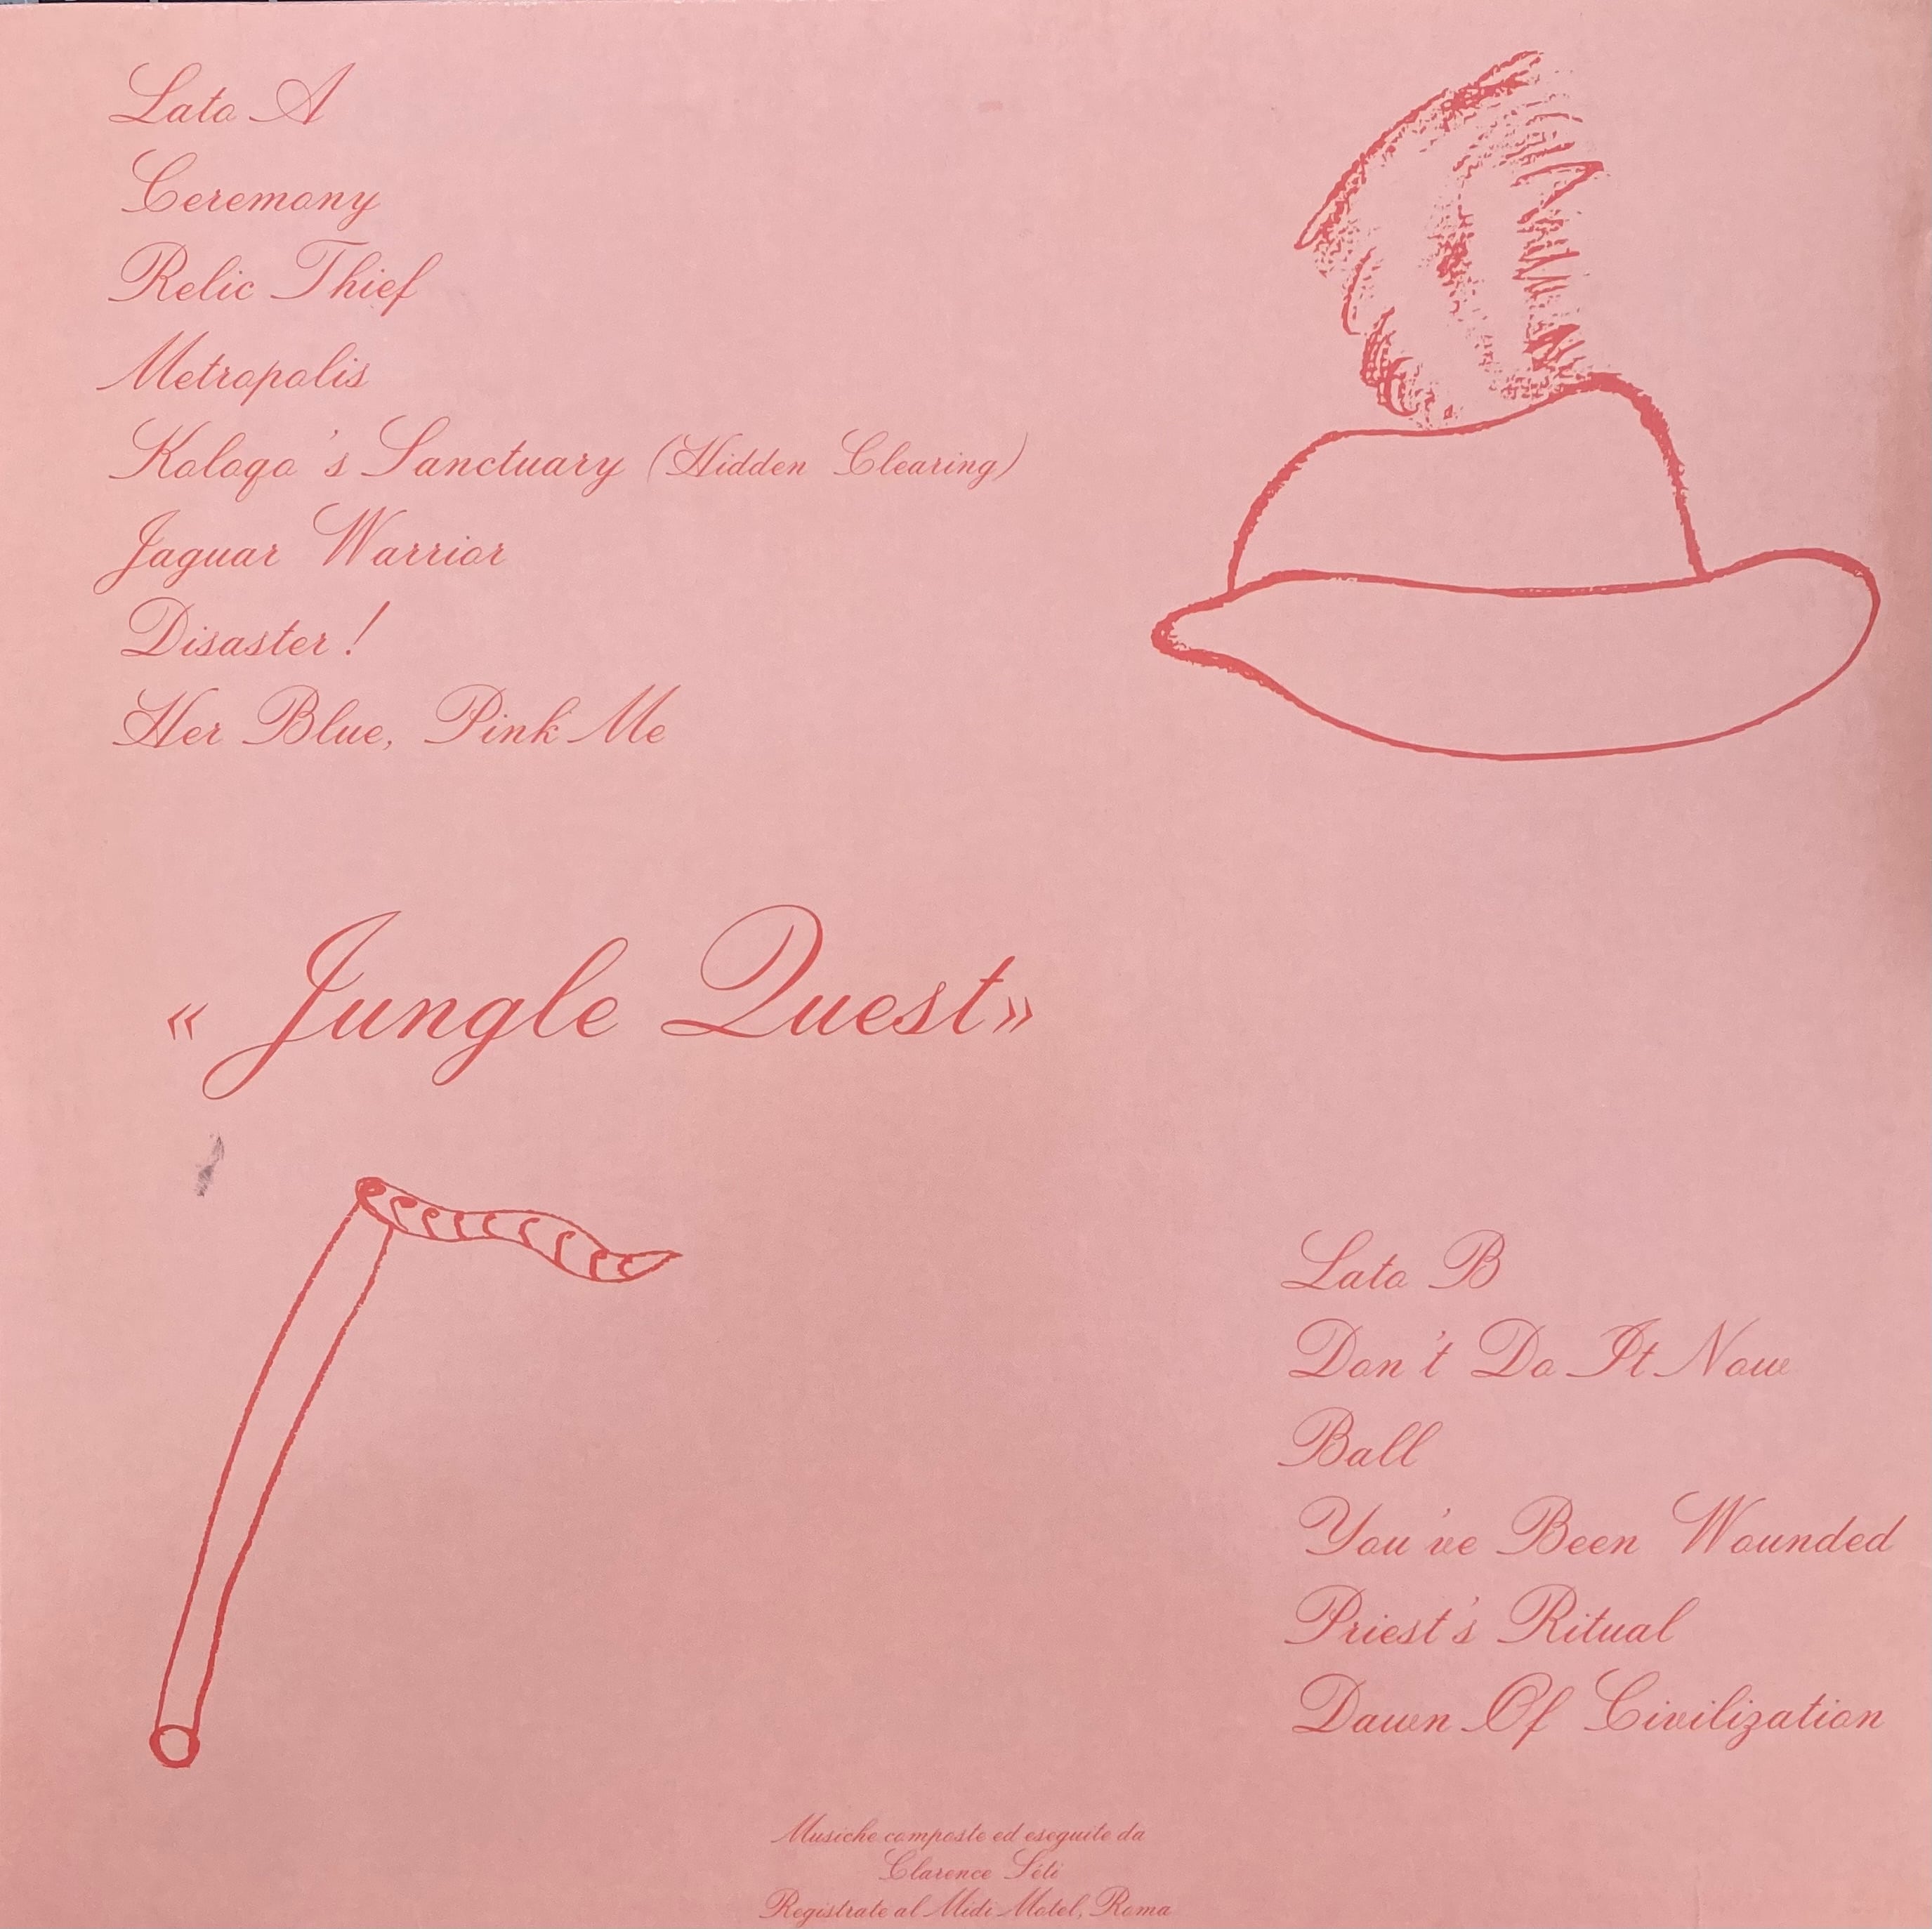 Lato A
Ceremony
Relic Thief
Metropolis
Kologo's Sanctuary (Hidden Clearing)
Jaguar Warrior
Disaster!
Her Blue, Pink Me
« Jungle Quest»
Lato B
Don't Do It Now
Ball
You've Been Wounded
Priest's Ritual
Dawn Of Civilization
Musiche composte ed eseguite da
Clarence Séti
Registrate al Midi Motel, Roma